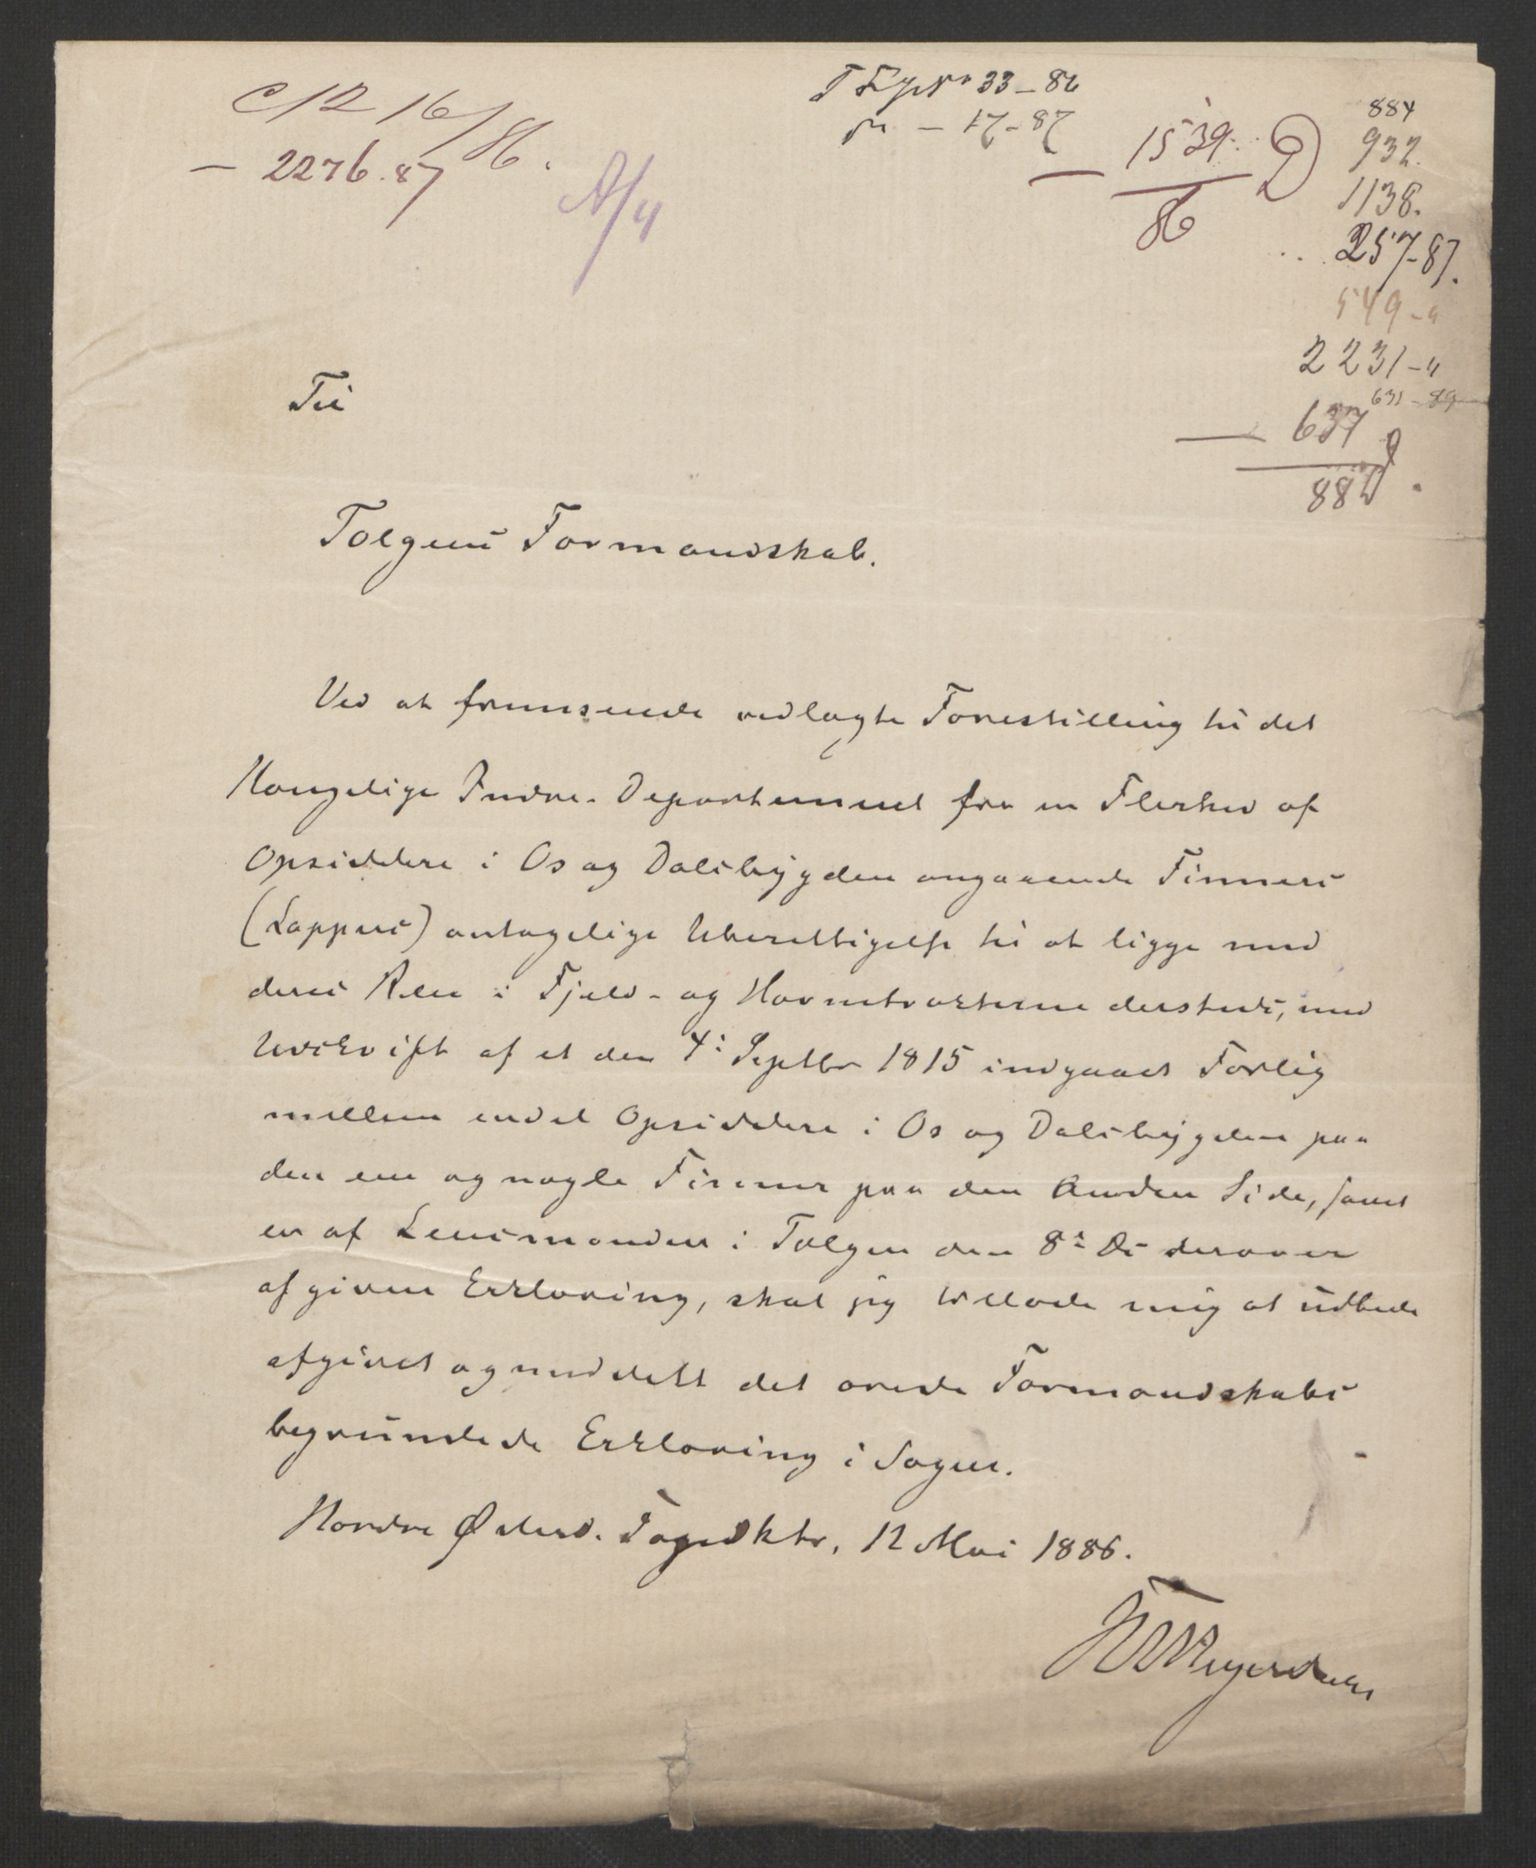 C 12 16/86.
— 2276.87
A/4
T Expr 33-86
— 17-87
— 1539. D
86
884
932.
1138.
257-87.
549-"
2231-"
631-89
— 637 D
88
Til
Tolgens Formandskab.
Ved at fremsende vedlagte Forestilling til det
Kongelige Indre-Departement fra en Flerhed af
Opsiddere i Os og Dalsbygden angaaende Finners
(Lappers) antagelige Uberettigelse til at ligge med
deres Ren i Fjeld- og Havnetrakterne dersteds, med
Udskrift af et den 4de Septbr 1815 indgaaet Forlig
mellem endel Opsiddere i Os og Dalsbygden paa
den ene og nogle Finner paa den Anden Side, samt
en af Lensmanden i Tolgen den 8de Ds derover
afgiven Erklæring, skal jeg tillade mig at udbede
afgivet og meddelt det ærede Formandskabs
begrundede Erklæring i Sagen.
Nordre Østerd. Fogedktr, 12 Mai 1886.